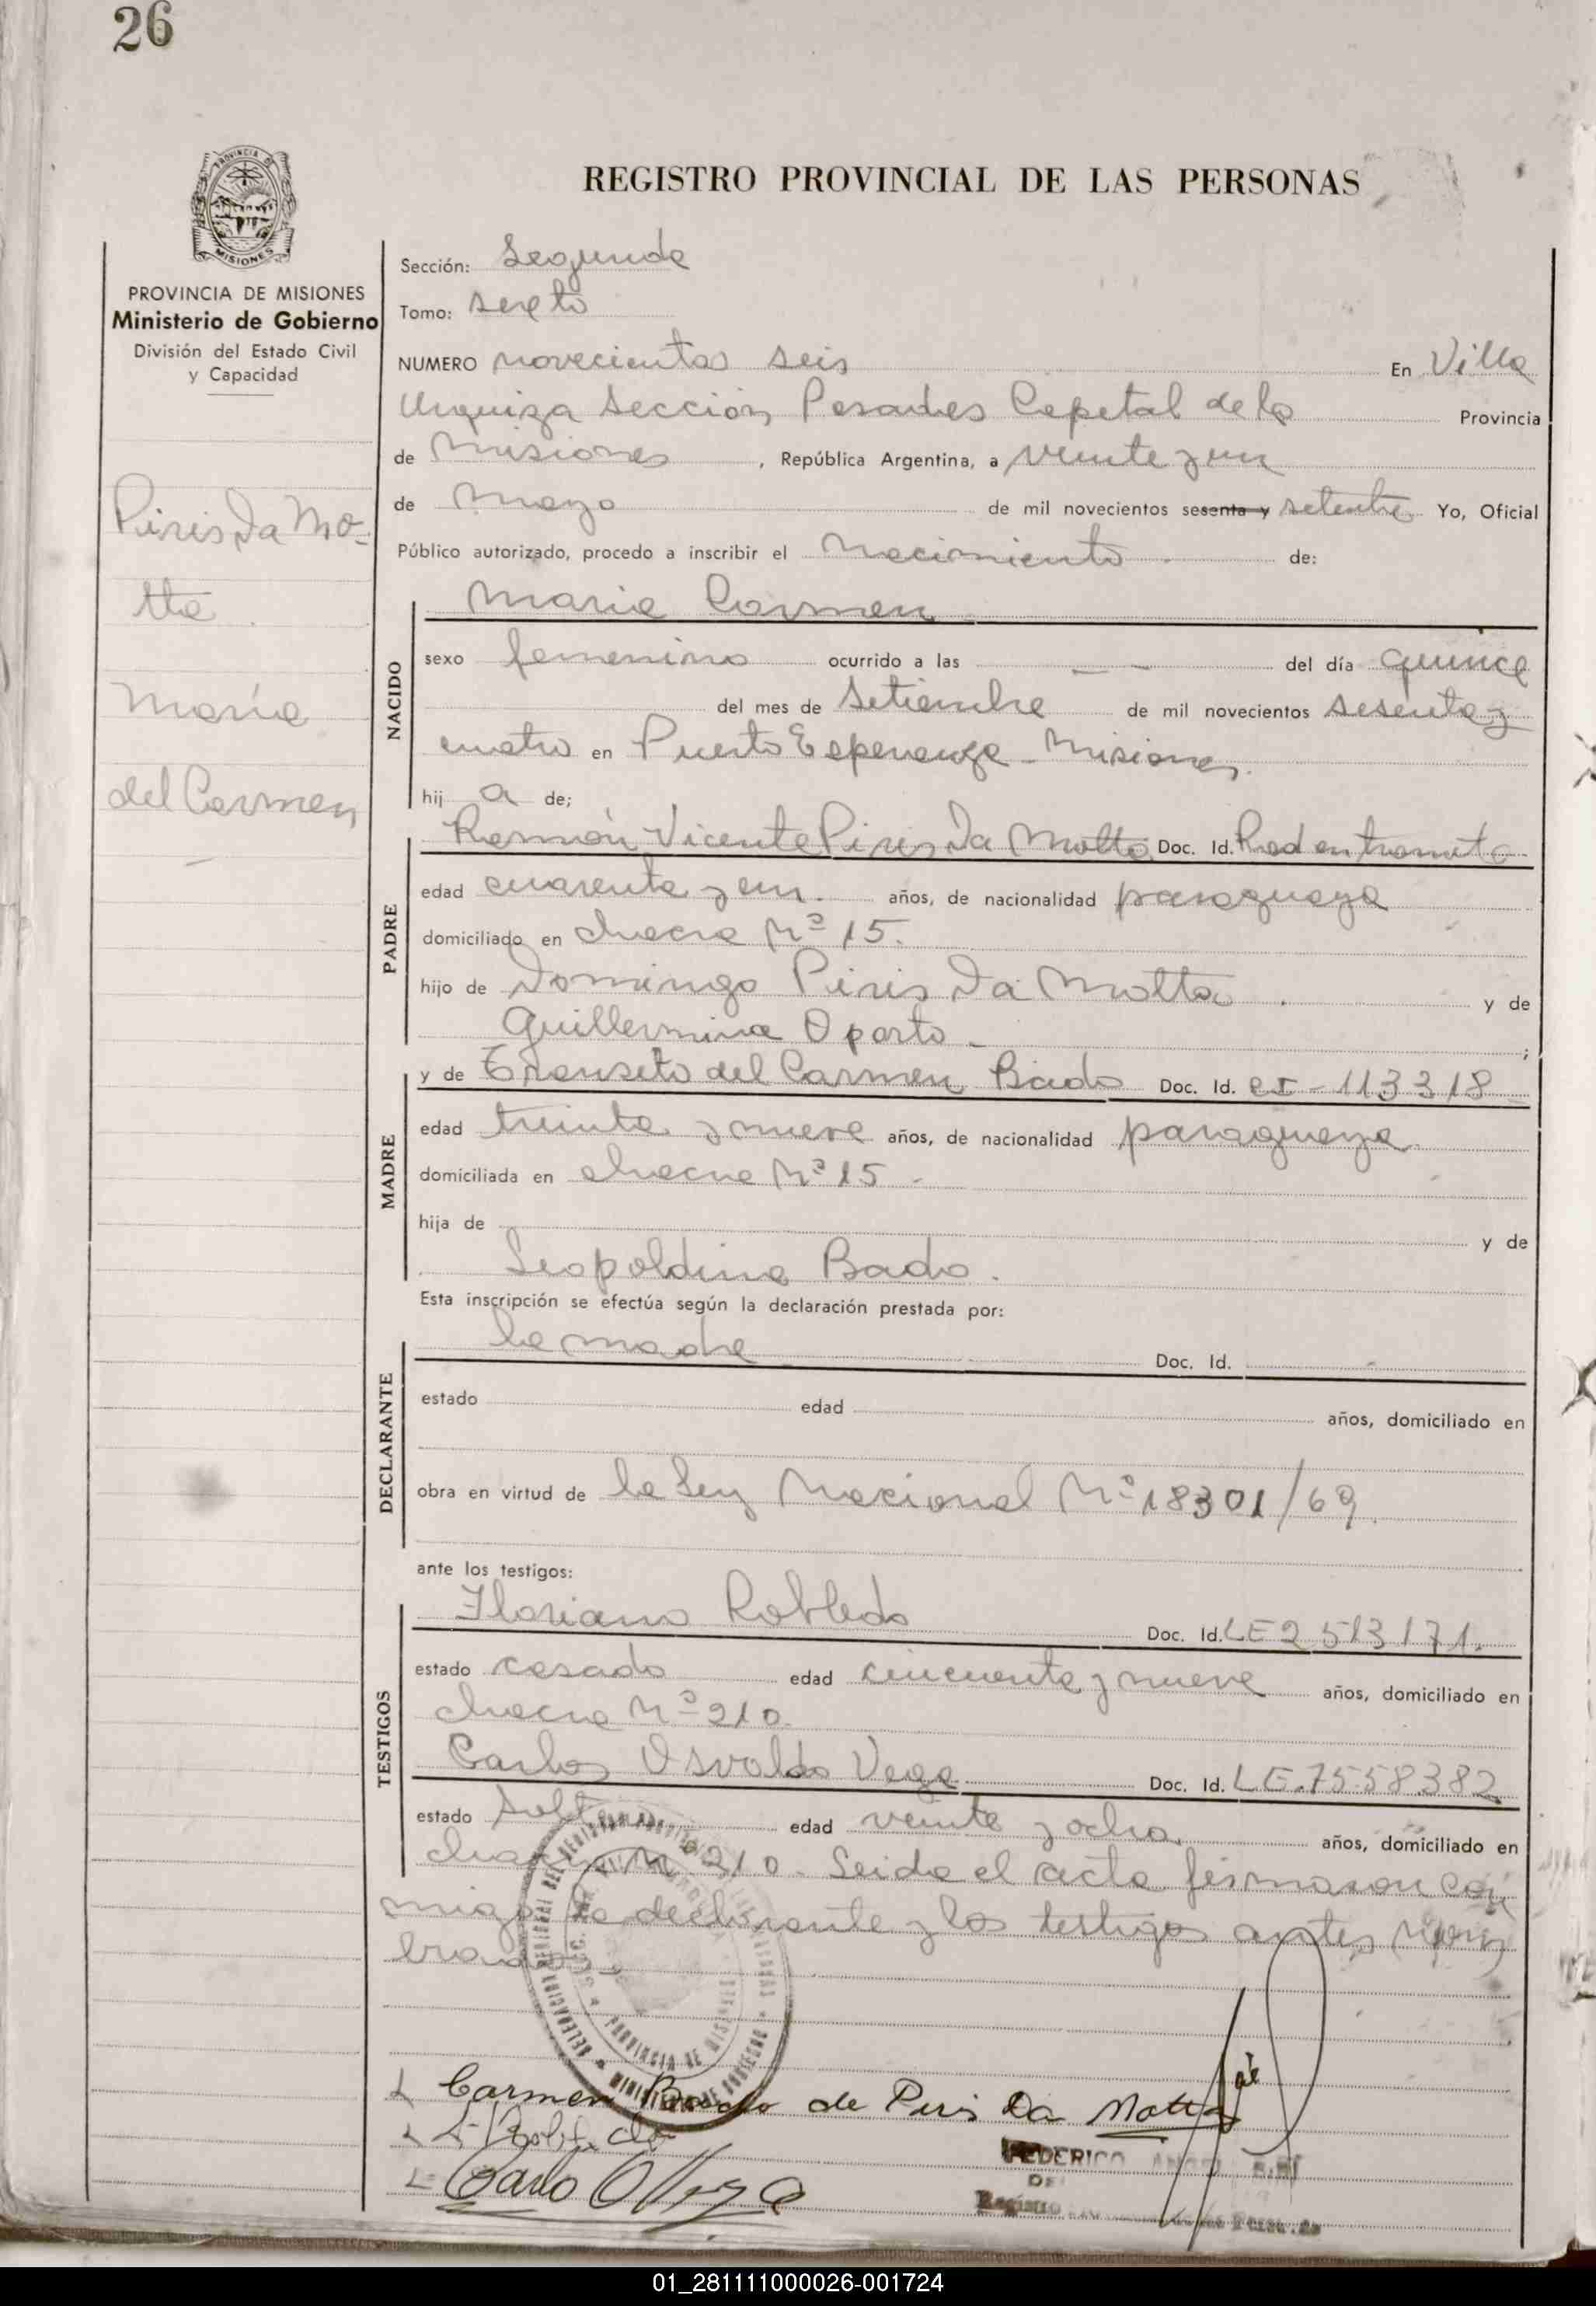 26
REGISTRO PROVINCIAL DE LAS PERSONAS
PROVINCIA DE MISIONES
Ministerio de Gobierno
División del Estado Civil
y Capacidad
Piris Da Mo-
tta
María
del Carmen
Sección: Segunda
Tomo: sexto
NUMERO novecientos seis En Villa
Urquiza Sección Posadas Capital de la Provincia
de Misiones, República Argentina, a veinte y un
de Mayo de mil novecientos sesenta y setenta Yo, Oficial
Público autorizado, procedo a inscribir el Nacimiento de:
NACIDO
Maria Carmen
sexo femenino ocurrido a las — — del día quince
del mes de Setiembre de mil novecientos sesenta y
cuatro en Puerto Esperanza - Misiones.
hij a de;
PADRE
Ramón Vicente Piris Da Motta Doc. Id. Rad en tramite
edad cuarenta y un. años, de nacionalidad paraguaya
domiciliado en chacra Nº 15.
hijo de Domingo Piris Da Motta. y de
Guillermina Oporto -;
MADRE
y de Transito del Carmen Bado Doc. Id. CI - 113318 -
edad treinta y nueve años, de nacionalidad paraguaya
domiciliada en chacra Nº 15 -
hija de y de
Leopoldina Bado.
Esta inscripción se efectúa según la declaración prestada por:
DECLARANTE
la madre Doc. Id. -
estado edad años, domiciliado en
obra en virtud de la Ley Nacional Nº 18301/69.
ante los testigos:
TESTIGOS
Floriano Robledo Doc. Id. LE 2513171.
estado casado edad cincuenta y nueve años, domiciliado en
chacra Nº 210.
Carlos Osvaldo Vega Doc. Id. LE.7558382
estado soltero edad veinte y ocho años, domiciliado en
chacra Nº 210. Leida el acta firmaron con
migo la declarante y los testigos antes nom
brados
Carmen Bado de Piris Da Motta
F. Robledo
Carlo O Vega
FEDERICO ANGEL
Registro
01_281111000026-001724